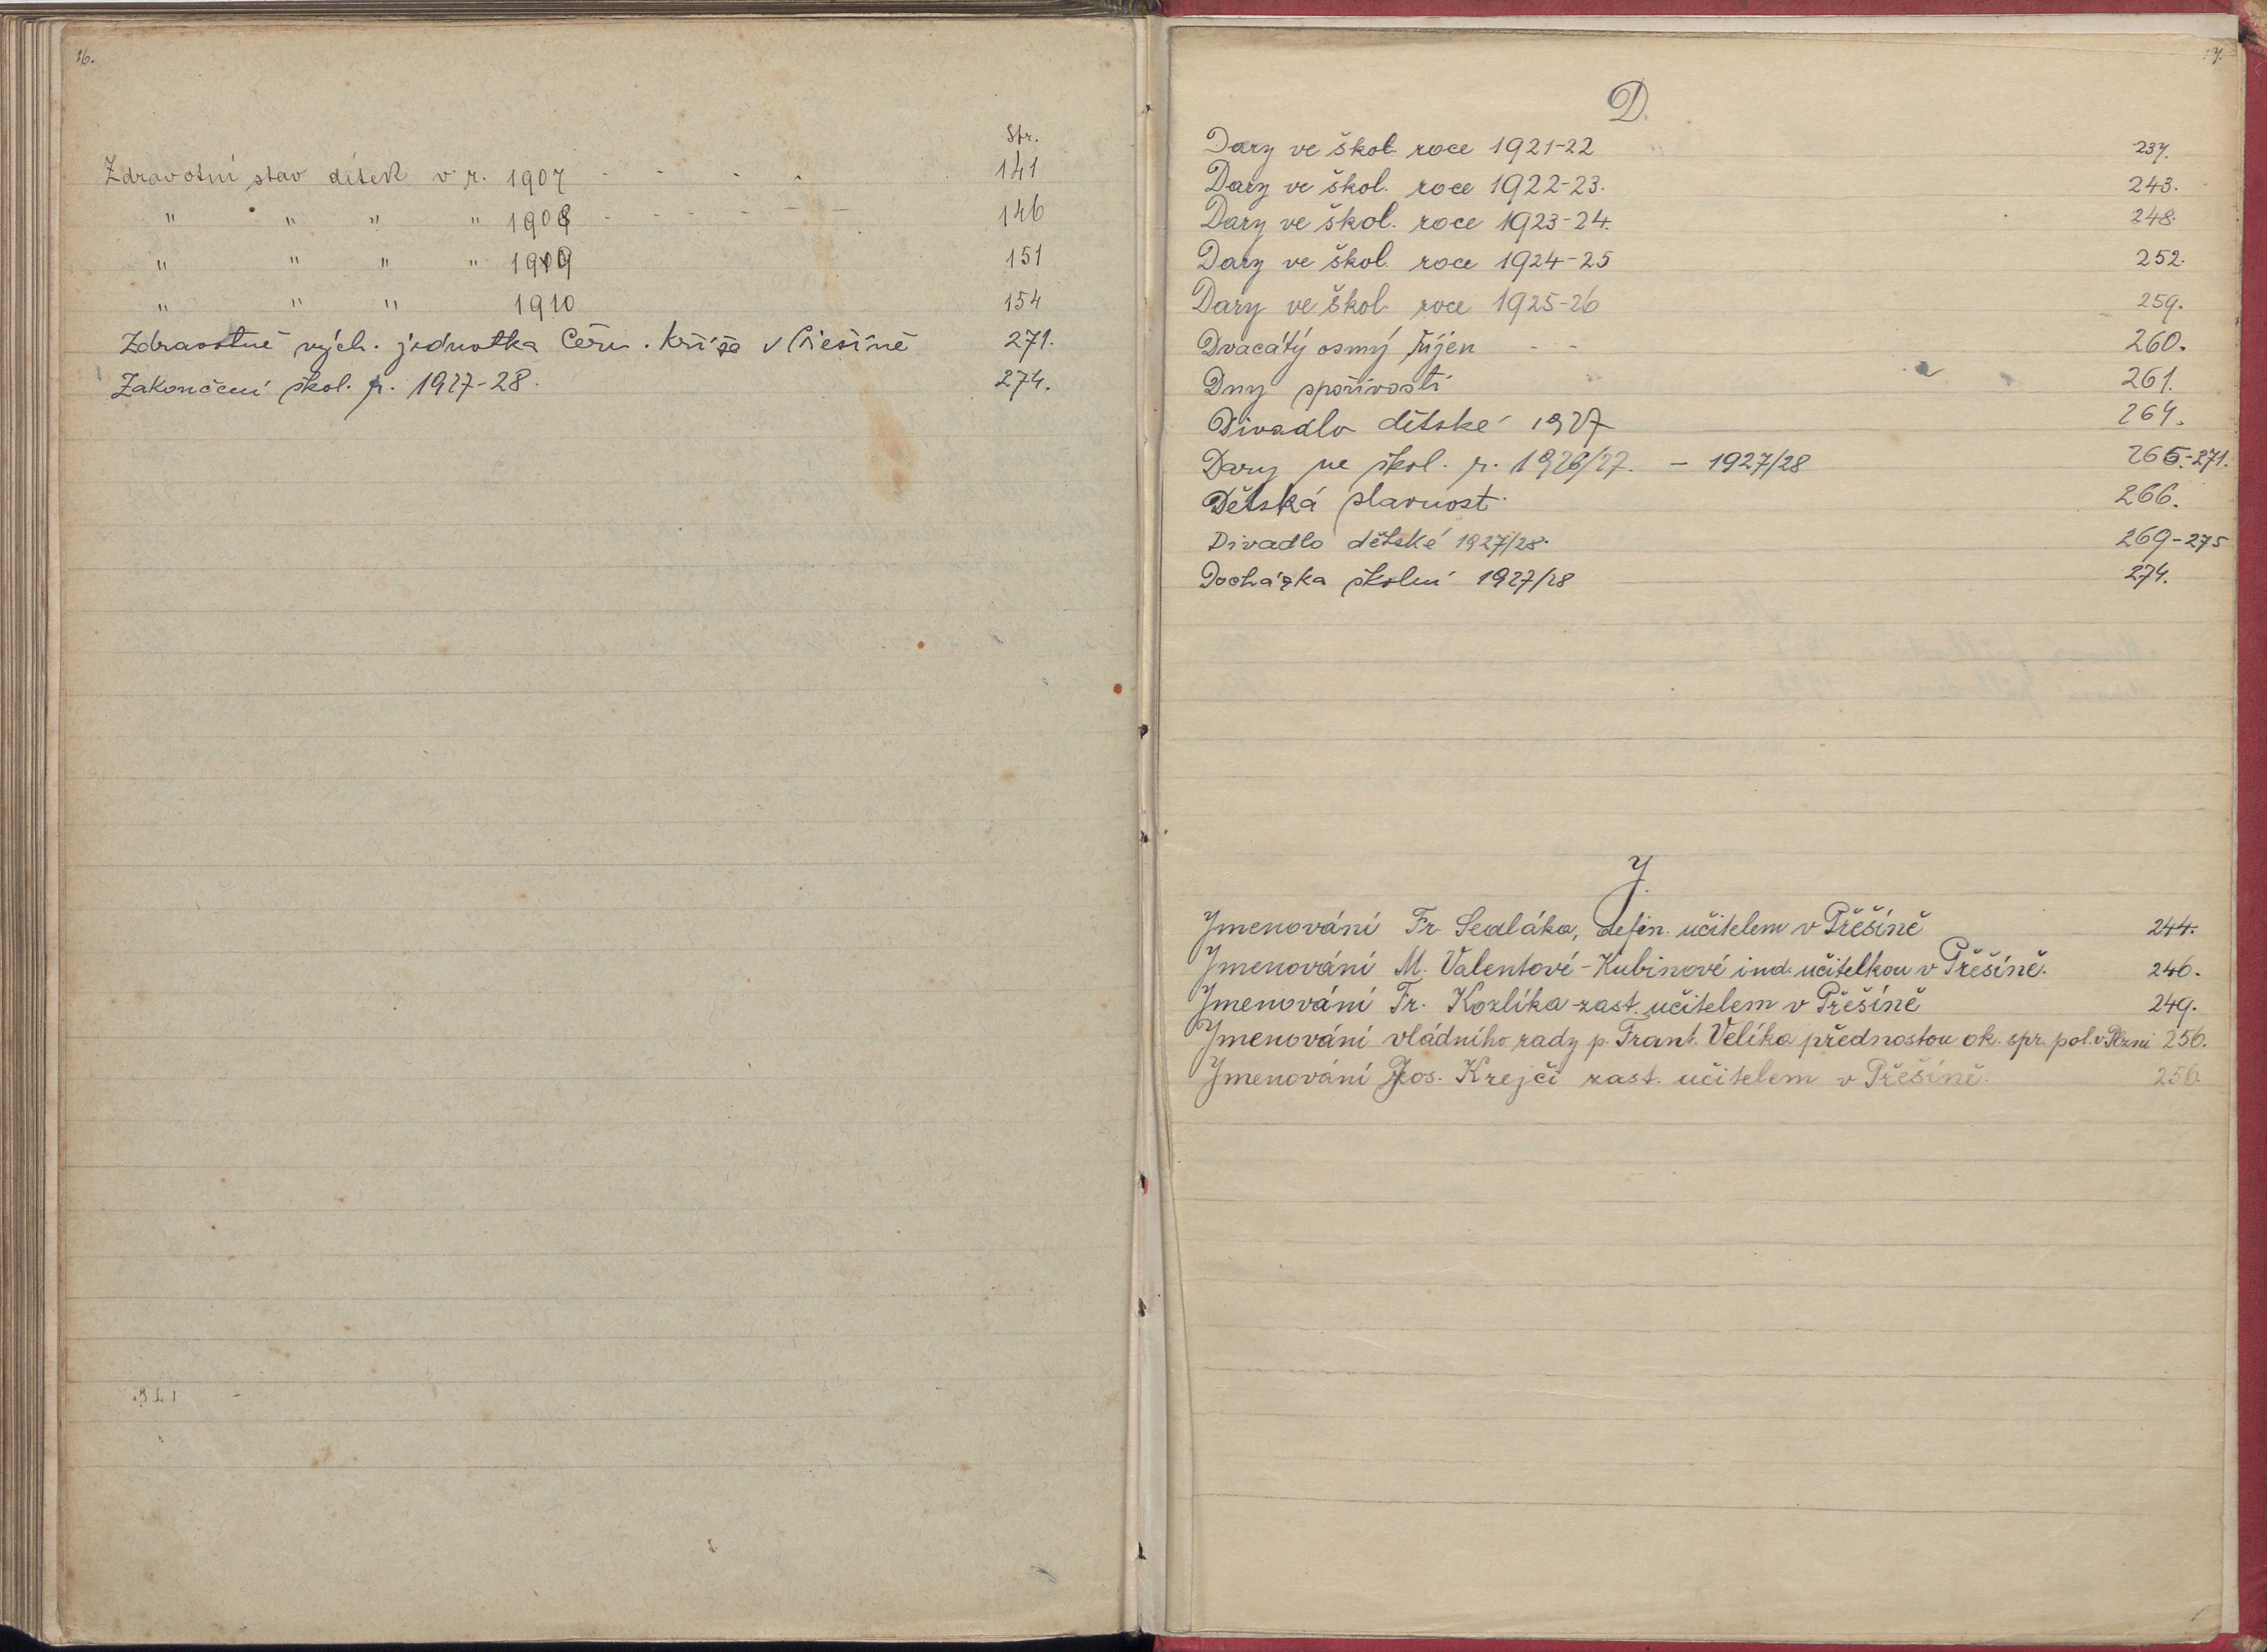 16.
Str.
Zdravotní stav dítek v r. 1907 - - - - 141
" " " " 1908 - - - - - - 146
" " " " 1909 151
" " " 1910 154
Zdravotně vých. jednotka Červ. kříže v Přešíně 271.
Zakončení škol. r. 1927-28. 274.
17.
D.
Dary ve škol. roce 1921-22 237.
Dary ve škol. roce 1922-23. 243.
Dary ve škol. roce 1923-24. 248.
Dary ve škol. roce 1924-25 252.
Dary ve škol. roce 1925-26 259.
Dvacátý osmý říjen - - 260.
Dny spořivosti 261.
Divadlo dětské 1927 264.
Dary ve škol. r. 1926/27. - 1927/28 266.-271.
Dětská slavnost. 266.
Divadlo dětské 1927/28. 269-275
Docházka školní 1927/28 274.
J.
Jmenování Fr. Sedláka, defin. učitelem v Přešíně 244.
Jmenování M. Valentové-Kubinové ind. učitelkou v Přešíně. 246.
Jmenování Fr. Kozlíka zast. učitelem v Přešíně 249.
Jmenování vládního rady p. Frant. Velíka přednostou ok. spr. pol. v Plzni 256.
Jmenování Jos. Krejčí zast. učitelem v Přešíně. 256.